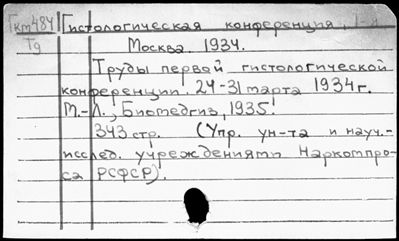 Гкт484 Гистологическая конференция, 1-я
Тд Москва 1934.
Труды первой гистологической
конференции. 24-31 марта 1934 г.
М.-Л., Биомедгиз, 1935.
343 стр. (Упр. ун-та и науч.-
исслед. учреждениями Наркомпро-
са РСФСР).